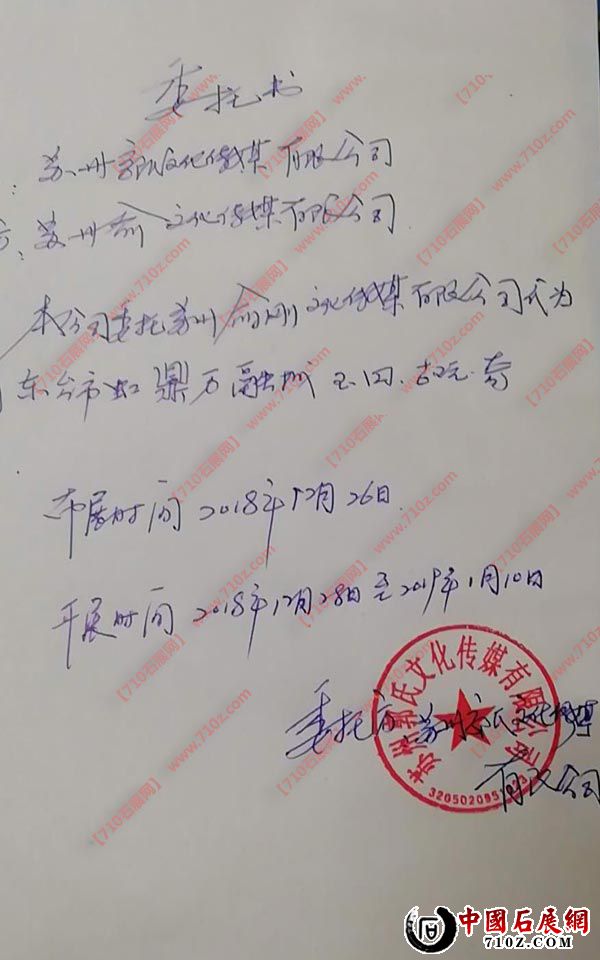 委托书
: 苏州郭氏文化传媒有限公司
方: 苏州俞 文化传媒有限公司
本公司委托苏州俞刚文化传媒有限公司代为
东台市 鼎万融城 玉、 、古玩、
布展时间 2018年12月26日.
开展时间 2018年12月28日至2019年1月10日
委托方 苏州郭氏文化传媒
有限公司
苏州郭氏文化传媒有限公司
【710石展网】 www.710z.com
中國石展網
710Z.COM